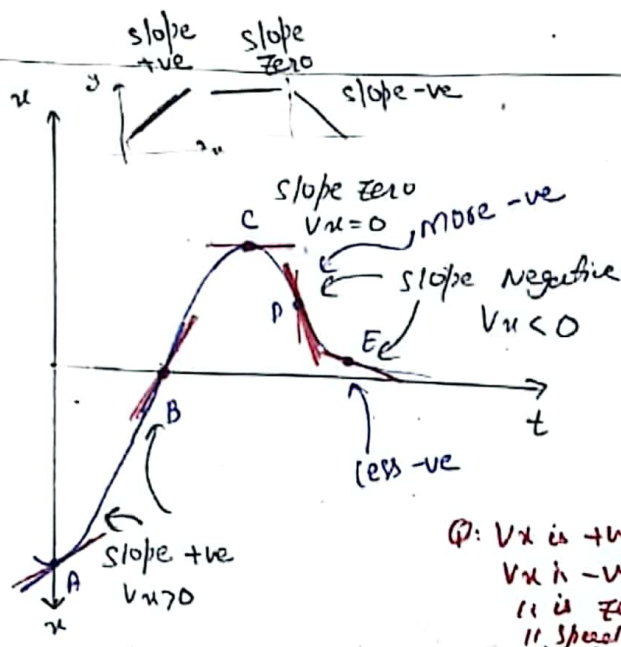 slope +ve
slope zero
slope -ve
y
x
x
slope zero
Vx=0
C
more -ve
slope Negative
Vx < 0
D
E
B
t
less -ve
slope +ve
Vx>0
A
x
Q: Vx is +v
Vx is -v
" is ze
" speed